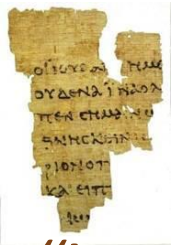 ΟΙ ΙΟΥΔΑ ΗΜΕ
ΟΥΔΕΝΑ ΙΝΑ Ο
ΠΕΝ CΗΜΑΙΝΩ
ΘΝΗCΚΕΙΝ
ΡΙΟΝ Ο Π
ΚΑΙ ΕΙΠ